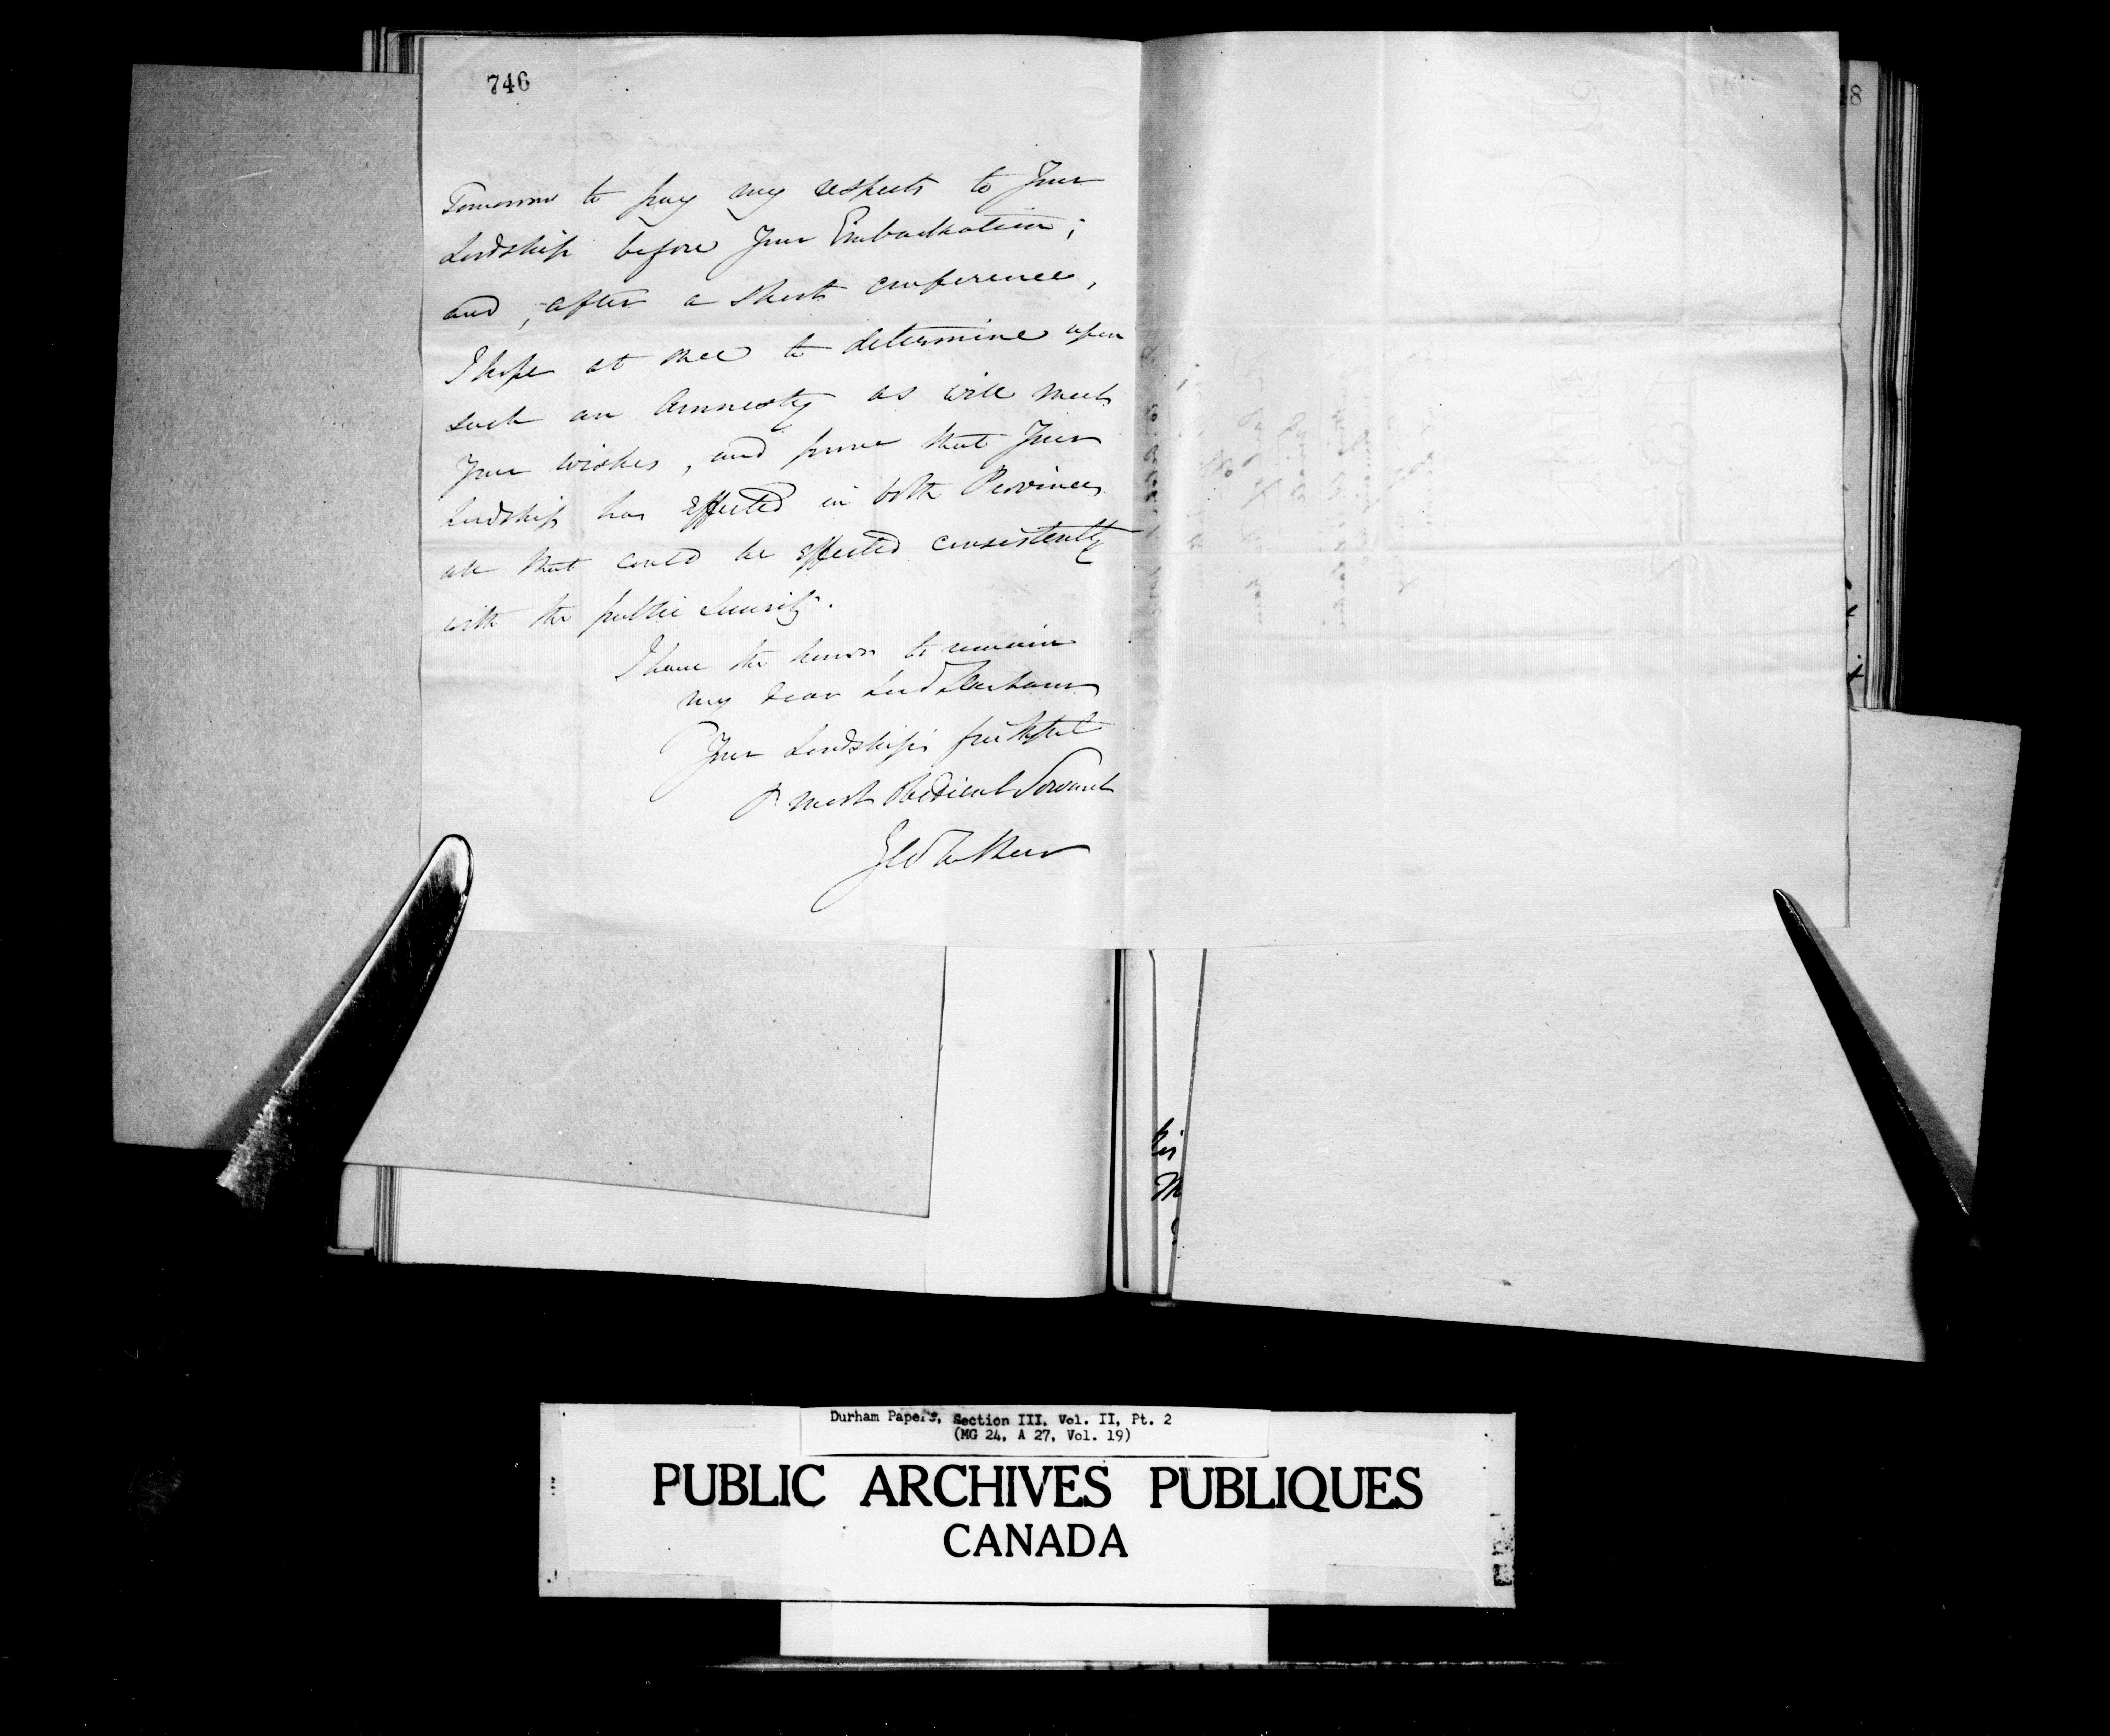 746
Tomorrow to pay my respects to Your
Lordship before Your Embarkation;
and, after a short conference,
I hope at once to determine upon
such an Amnesty as will meet
Your wishes, and prove that Your
Lordship has effected in both Provinces
all that could be effected consistently
with the public Security.
I have the honor to remain
my dear Lord Durham
Your Lordship's faithful
& most Obedient Servant
Geo Arthur
48
his M
Durham Papers, Section III. Vol. II, Pt. 2
(MG 24, A 27, Vol. 19)
PUBLIC ARCHIVES PUBLIQUES
CANADA